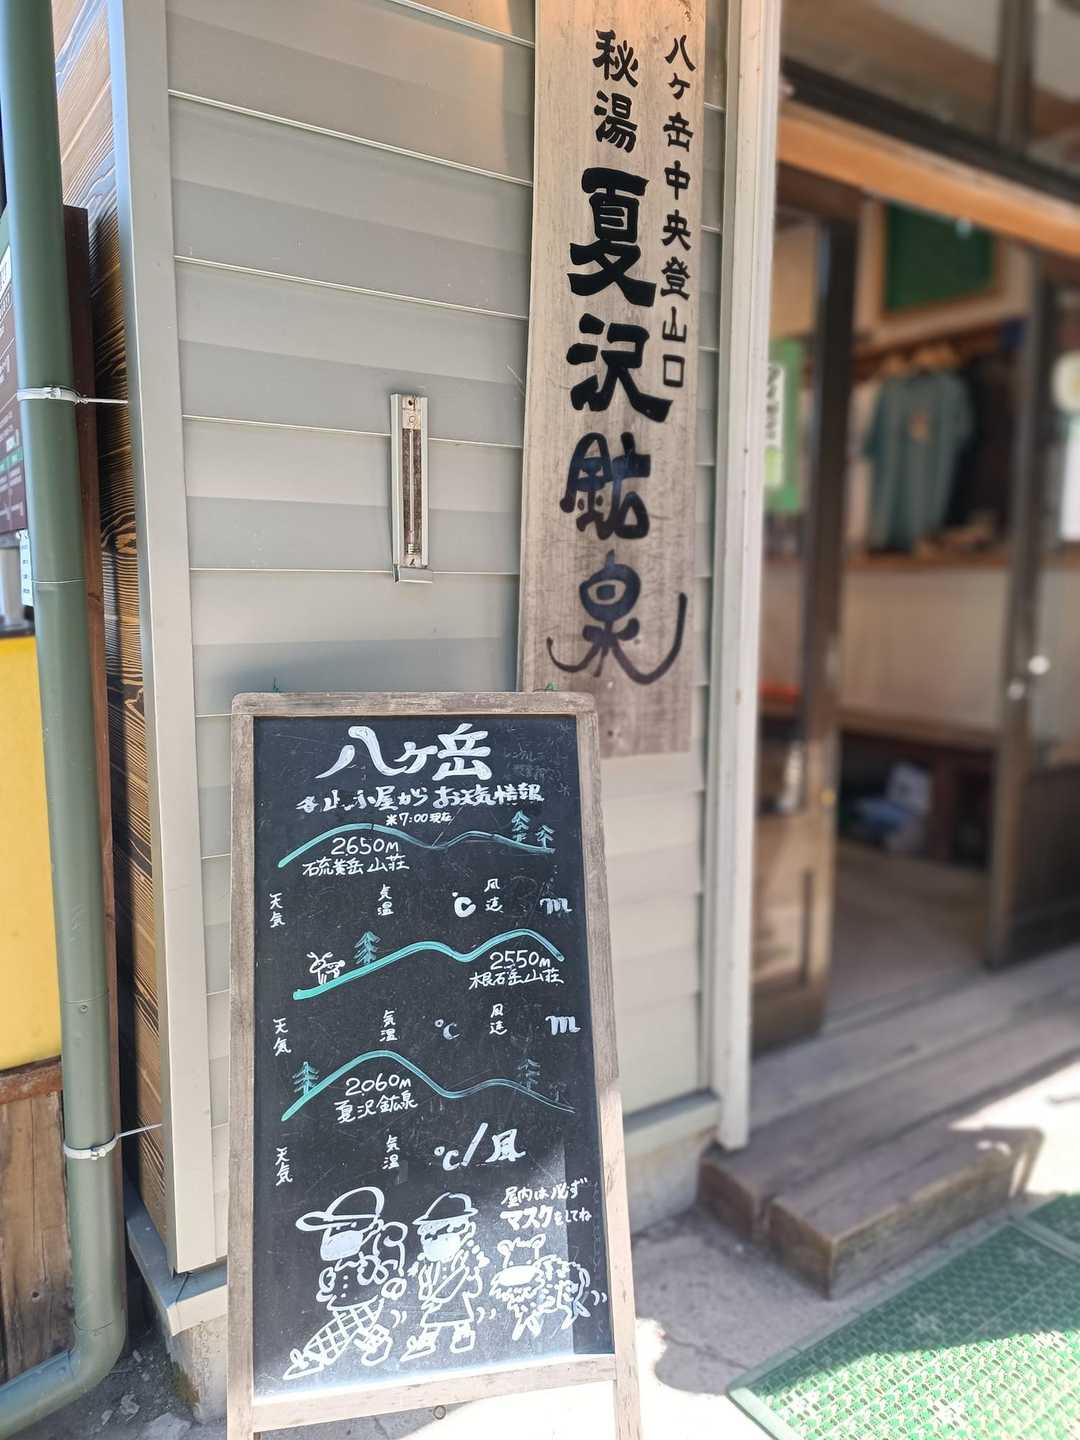 八ヶ岳中央登山口
秘湯
夏沢鉱泉
八ヶ岳
各山小屋からお天気情報
※7:00現在
2650m
硫黄岳山荘
天気 気温 ℃ 風速 m
2550m
根石岳山荘
天気 気温 ℃ 風速 m
2060m
夏沢鉱泉
天気 気温 ℃/風
屋内は必ず
マスクをしてね